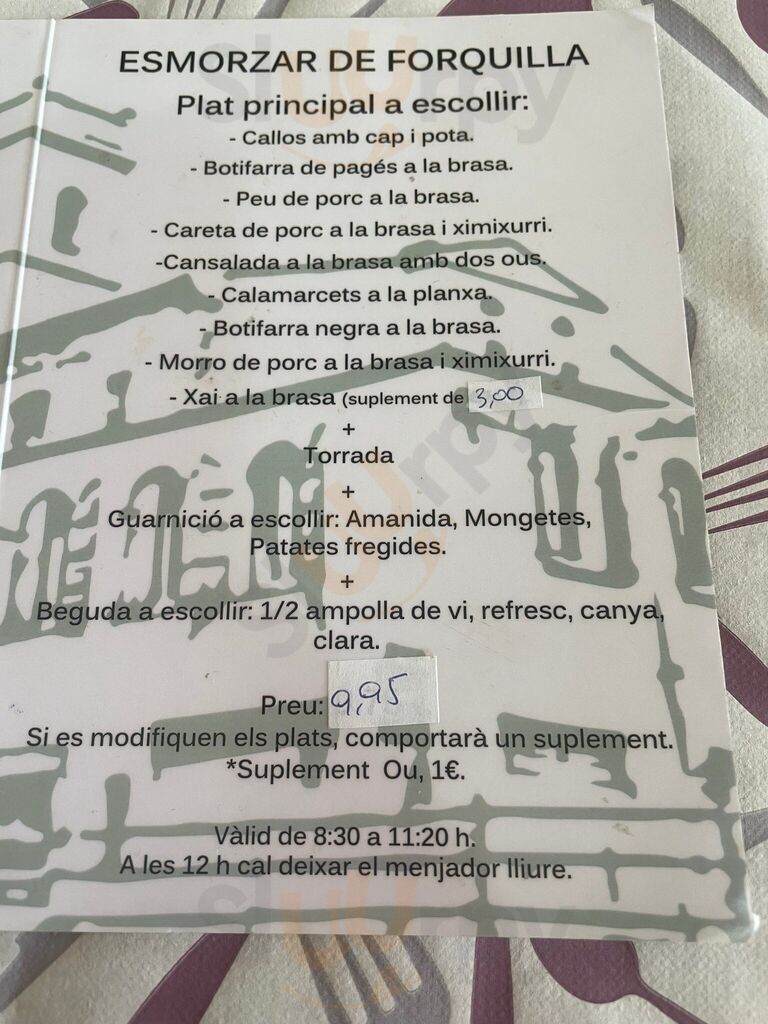 ESMORZAR DE FORQUILLA
Plat principal a escollir:
- Callos amb cap i pota.
- Botifarra de pagés a la brasa.
- Peu de porc a la brasa.
- Careta de porc a la brasa i ximixurri.
-Cansalada a la brasa amb dos ous.
- Calamarcets a la planxa.
- Botifarra negra a la brasa.
- Morro de porc a la brasa i ximixurri.
- Xai a la brasa (suplement de 3,00
+
Torrada
+
Guarnició a escollir: Amanida, Mongetes,
Patates fregides.
+
Beguda a escollir: 1/2 ampolla de vi, refresc, canya,
clara.
Preu: 9,95
Si es modifiquen els plats, comportarà un suplement.
*Suplement Ou, 1€.
Vàlid de 8:30 a 11:20 h.
A les 12 h cal deixar el menjador lliure.
Slurpy
Slurpy
Slurpy